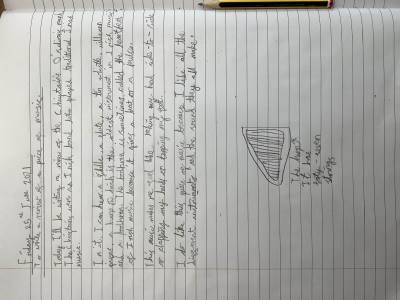 Friday 25th June 2021
To write a review of a piece of music.
Today I'll be writing a review of the Chieftains
The Chieftains were an Irish band who played traditional Irish
music.
In it, I can hear a fiddle, a flute, a tin whistle, uilleann
pipes, a harp which is the oldest instrument in Irish music
and a bodhran. The bodhran is sometimes called the heartbeat
of Irish music because it gives a beat or a pulse.
This music makes me feel like moving my head side-to-side
or clapping my hands or tapping my feet.
I do like this piece of music because I like all the
different instruments and the sound they all make.
The harp
It has
forty-seven
strings